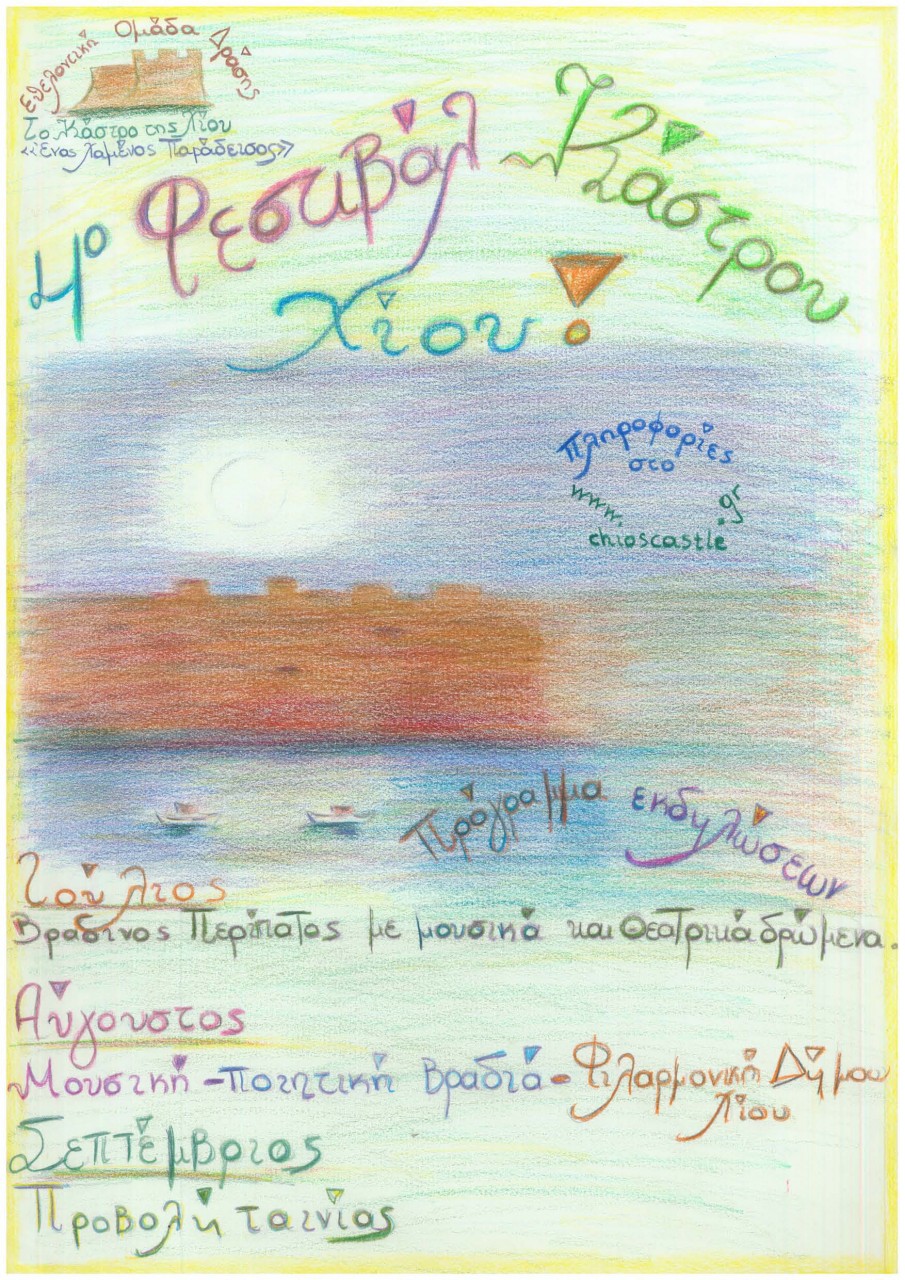 Εθελοντική Ομάδα Δράσης
Το Κάστρο της Χίου
«Ένας Χαμένος Παράδεισος»
4ο Φεστιβάλ Κάστρου
Χίου!
Πληροφορίες
στο
www.chioscastle.gr
Πρόγραμμα εκδηλώσεων
Ιούλιος
Βραδινός Περίπατος με μουσικά και Θεατρικά δρώμενα.
Αύγουστος
Μουσική - ποιητική Βραδιά - Φιλαρμονική Δήμου
Χίου
Σεπτέμβριος
Προβολή ταινίας